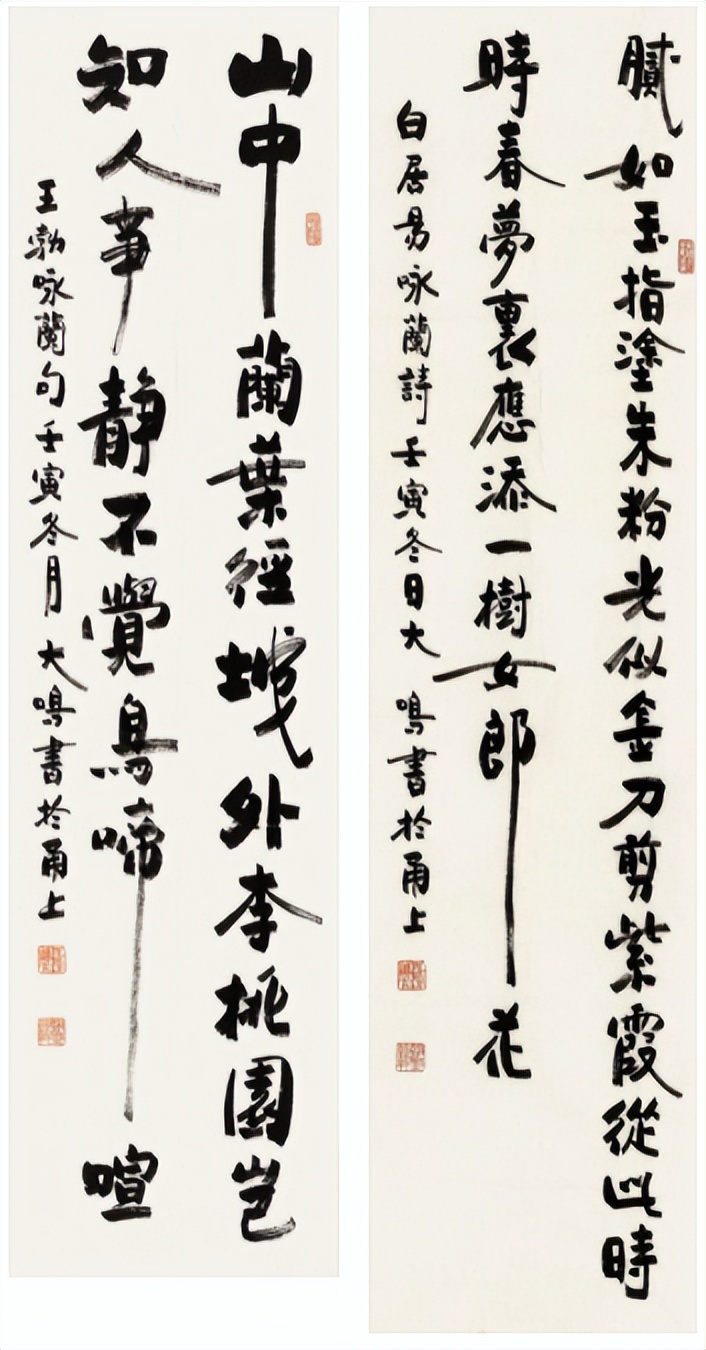 膩如玉指塗朱粉光似金刀剪紫霞從此時
時春夢裏應添一樹女郎花
白居易咏蘭詩壬寅冬日大鳴書於甬上
山中蘭葉徑城外李桃園豈
知人事靜不覺鳥啼喧
王勃咏蘭句壬寅冬月大鳴書於甬上